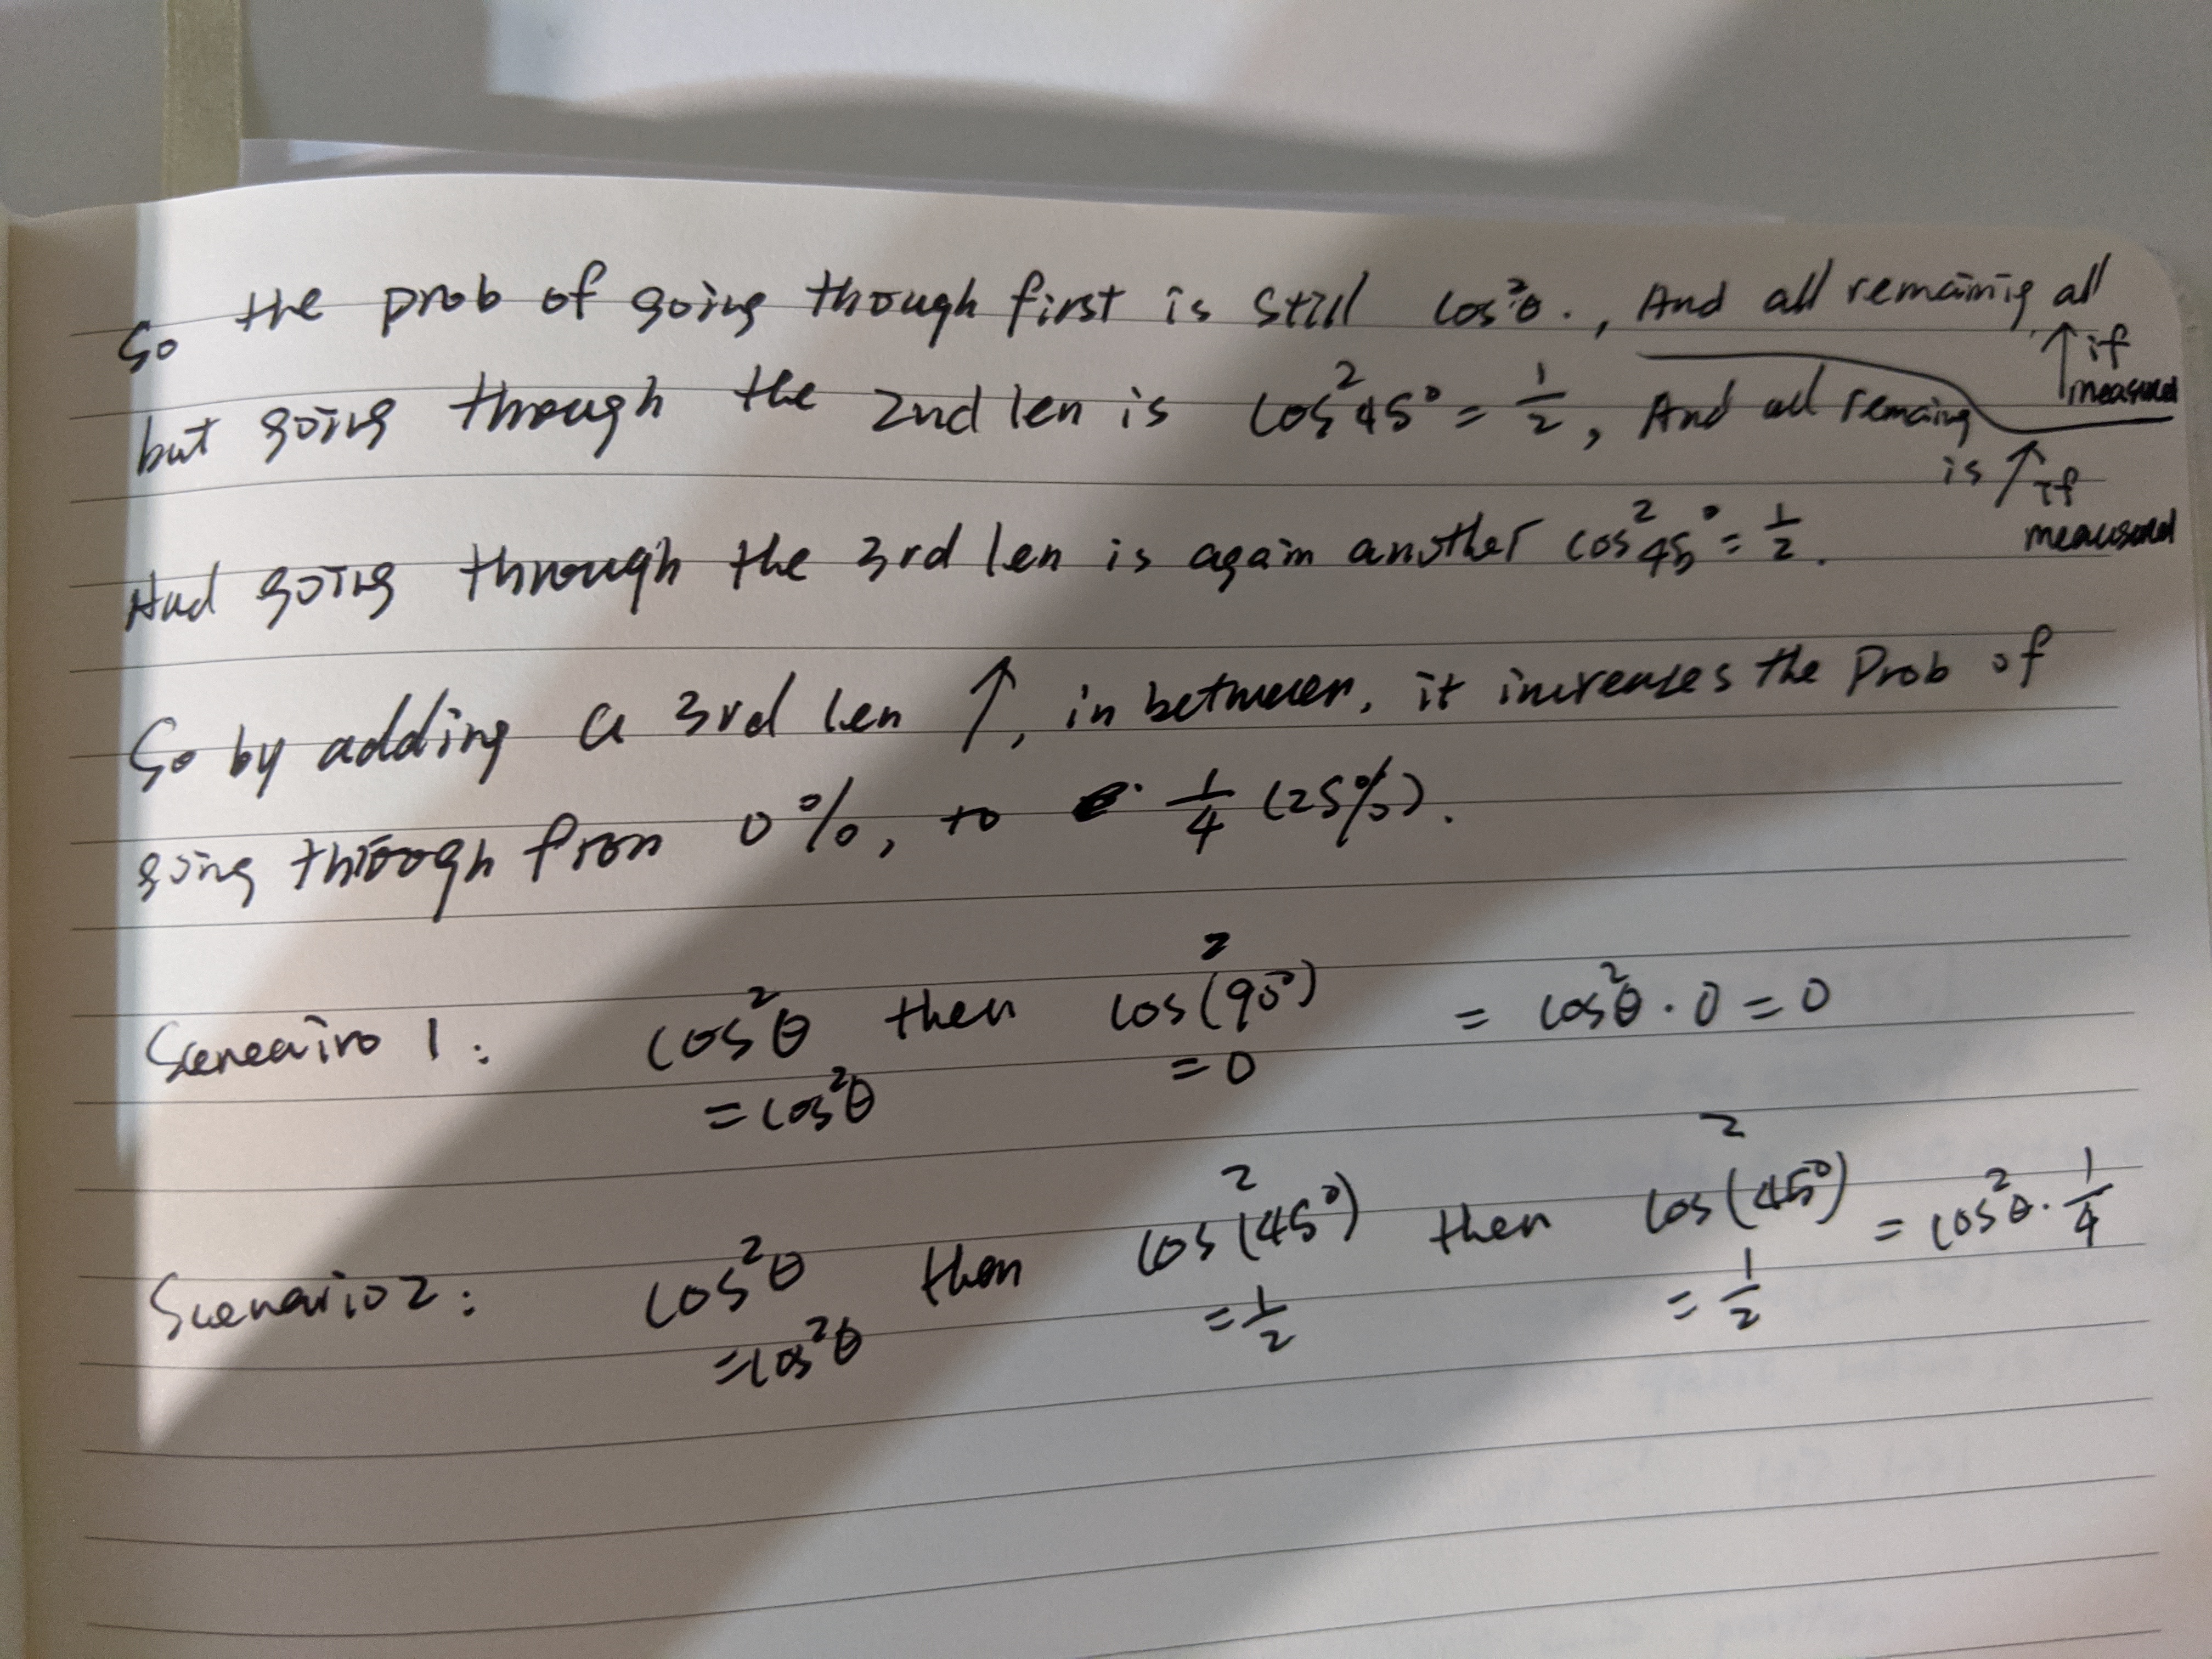 So the prob of going though first is still cos²θ. , And all remainig all ↑ if measured
but going through the 2nd len is cos²45° = 1/2, And all remaing is ↗ if measured
And going through the 3rd len is again another cos²45° = 1/2.
So by adding a 3rd len ↗, in between, it increases the Prob of
going through from 0%, to 1/4 (25%).
Sceneairo 1: cos²θ then cos²(90°) = cos²θ · 0 = 0
= cos²θ = 0
Scenario 2: cos²θ then cos²(45°) then cos²(45°) = cos²θ · 1/4
= cos²θ = 1/2 = 1/2